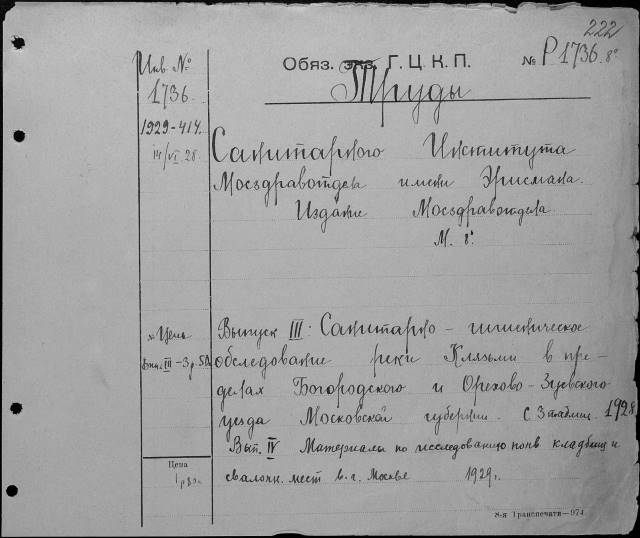 222
Инв №
1736
1929-414.
IV/VI 28.
Обяз. экз. Г.Ц.К.П.
№ Р1736 8°
Труды
Санитарного Института
Мосздравотдела имени Эрисмана.
Издание Мосздравотдела
М. 8°.
Цена
Вып. III - 3 р. 50
Выпуск III: Санитарно - гигиеническое
обследование реки Клязьмы в пре-
делах Богородского и Орехово-Зуевского
уезда Московской губернии. С 3 таблиц. 1928
Вып. IV Материалы по исследованию почв кладбищ и
свалочн. мест в г. Москве 1929 г.
Цена
8-я Транспечати—974